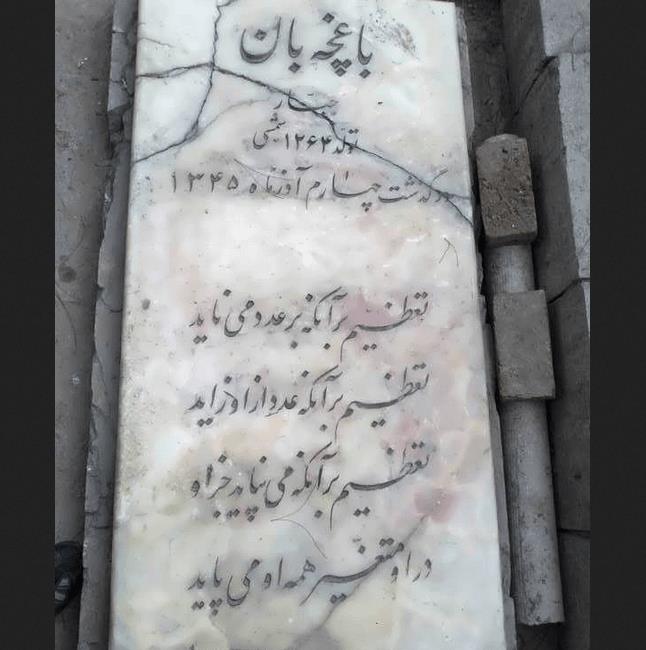 باغچه بان
جبار
تولد ۱۲۶۴ شمسی
درگذشت چهارم آذرماه ۱۳۴۵
تعظیم برآنکه بر عدد می ناید
تعظیم برآنکه عدد از او زاید
تعظیم برآنکه می نپاید جز او
در او متغیر همه او می پاید